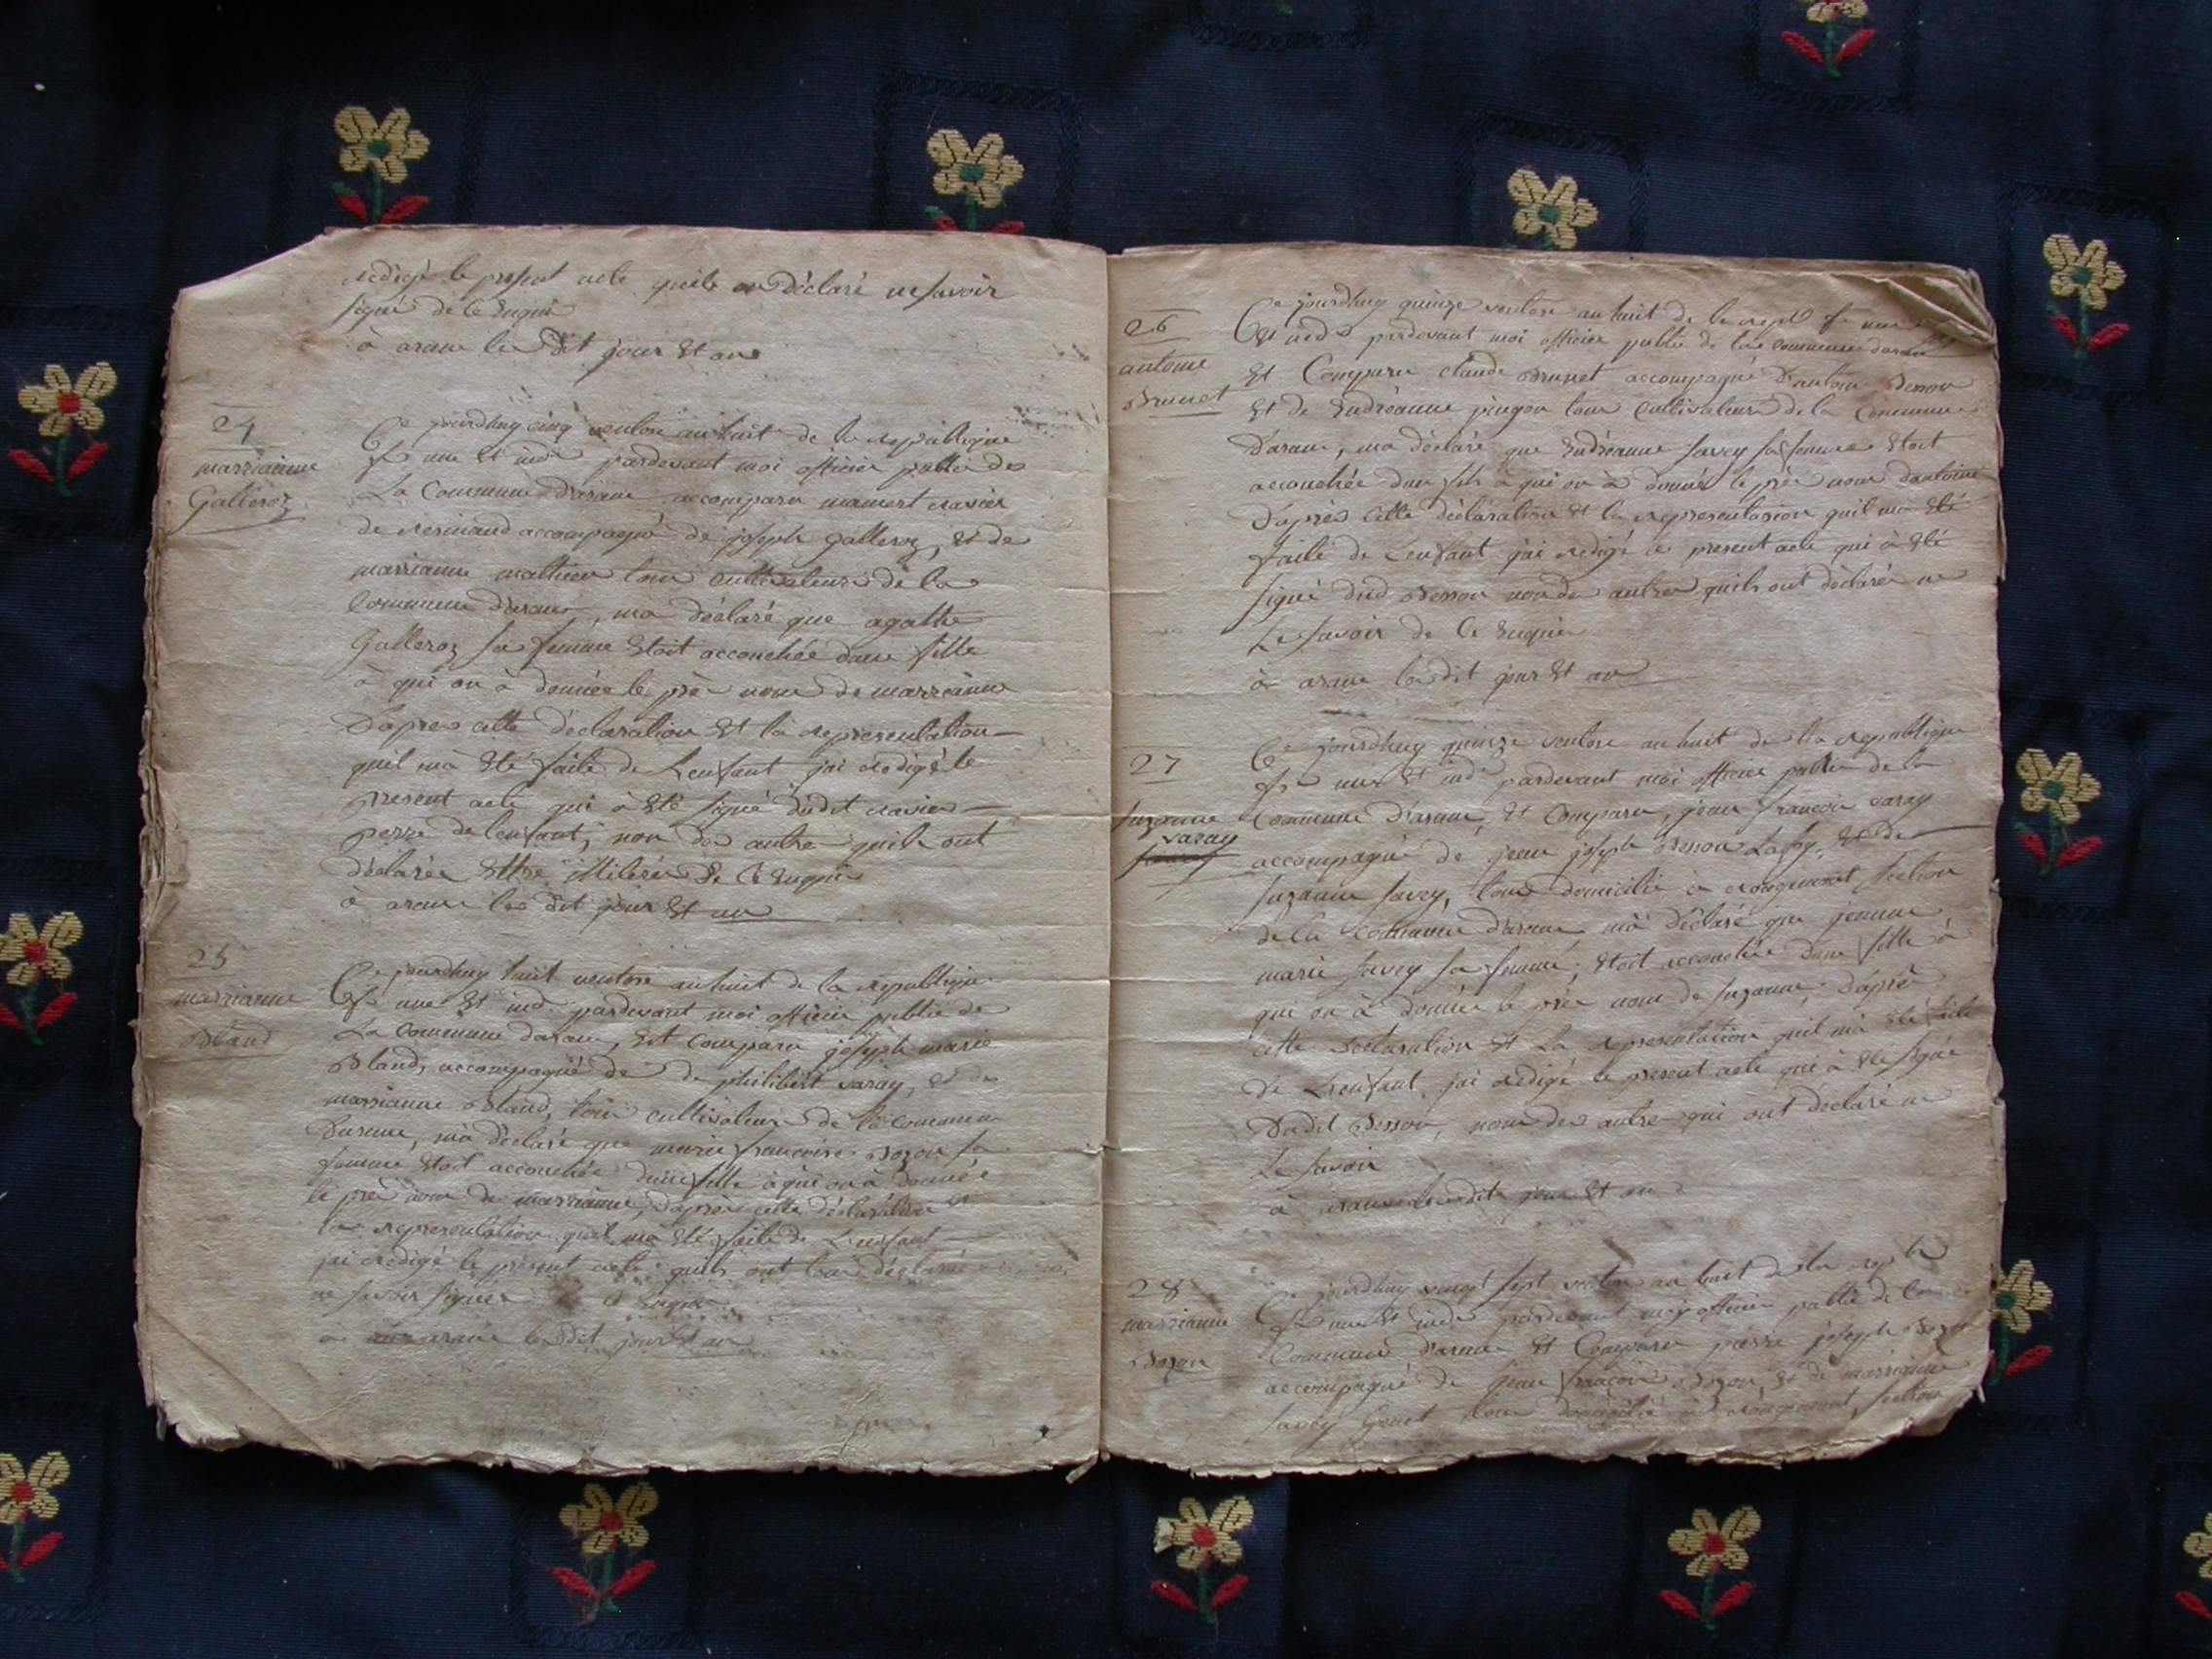 redigé le present acte quils on déclaré ne savoir
signé de ce enquis
à aranc les dit jour et an
24
marrianne
Galleroz
Ce jourdhuy cinq ventose an huit de la republique
fr une et indi pardevant moi officier public de
La Commune d'aranc, a comparu mamert ravier
de resinand accompagné de joseph Galleroz, et de
marrianne mathieu tous cultivateurs de la
Commune daranc, ma déclaré que agathe
Galleroz sa femme étoit accouchée dune fille
à qui on à donnée le pré nom de marrianne
D'apres cette declaration et la representation
quil mà été faite de Lenfant jai redigé le
present acte qui à été signé dudit ravier
perre de lenfant, non des autre quils ont
déclarée ettre illiteré de ce enquis
à aranc les dit jour et an
25
marrianne
Bland
Ce jourdhuy huit ventose an huit de la republique
fr une et ind. pardevant moi officier public de
La Commune daranc, est comparu joseph marie
Bland, accompagné de de philibert savay, et de
marrianne Bland, tous cultivateurs de la commune
Daranc, mà déclaré que marie francoise Bozon sa
femme étoit accouchée dune fille à qui on à donnée
le pré nom de marrianne, daprès cette déclaration et
la representation quil mà été faite de Lenfant
jai redigé le present acte quils ont tous déclaré
ne savoir signer ce enquis
à aranc les dit jour et an
26
antoine
Brunet
Ce jourdhuy quinze ventose an huit de la repl fr une
et indi pardevant moi officier public de la commune daranc
Et Comparu claude Brunet accompagné D'antoine Besson
et de Andréanne pingon tous Cultivateurs de la Commune
Daranc, ma déclaré que Andréanne savey sa femme étoit
accouchée dun fils à qui on à donné le pré nom dantoine
D'après cette déclaration et la representation quil ma été
faite de Lenfant jai redigé le present acte qui à été
signé dud Besson non des autres quils ont déclarée ne
Le savoir de ce enquis
à aranc les dit jour et an
27
suzanne
varay
Ce jourdhuy quinze ventose an huit de la republique
fr une et ind pardevant moi officier public de la
Commune d'aranc, et Comparu, jean francois varay
accompagné de jean joseph Besson Lafay, et de
suzanne savey, tous domicilié à rougemont section
de la Commune d'aranc mà déclaré que jeanne
marie savey sa femme, étoit accouchée dune fille à
qui on à donnée le pré nom de suzanne, daprè
cette Declaration et La representation quil mà été faite
de Lenfant, jai redigé le present acte qui à été signé
Dudit Besson, nom des autre qui ont déclaré ne
Le savoir
à aranc les dit jour et an
28
marrianne
Bozon
Ce jourdhuy vingt sept ventose an huit de la repb
fr une et indi pardevant moi officier public de la
Commune d'aranc et Comparu pierre joseph Bozon
accompagné de jean francois Bozon, et de marrianne
savey Genet tous domicilié à rougemont, section